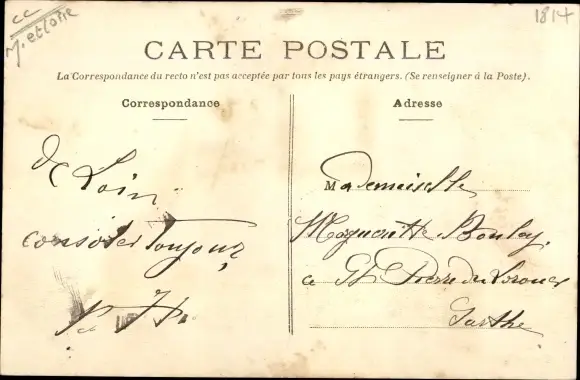 cc
M. et Loire
1814
CARTE POSTALE
La Correspondance du recto n'est pas acceptée par tous les pays étrangers. (Se renseigner à la Poste).
Correspondance
Adresse
De Loin
consoler toujours
Mademoiselle
Marguerite Bouley
a St Pierre du Lorouer
Sarthe